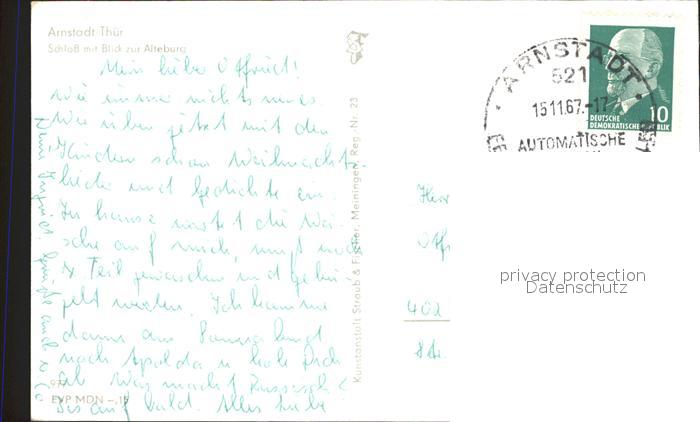 Arnstadt Thür
Schloß mit Blick zur Alteburg
Mein lieber
wie immer nichts neues.
Wir üben jetzt mit den
Kindern schon Weihnachts-
lieder und Gedichte ein.
Zu hause wartet die Wä-
sche auf mich, muß noch
z. Teil gewaschen und gebü-
gelt werden. Ich komme
dann am Sonnabend
nach Apolda u. hole Dich
ab. Was macht Russisch?
Bis auf bald. Alles Liebe
977
EVP MDN -,15
Kunstanstalt Straub & Fischer, Meiningen, Reg.-Nr. 23
ARNSTADT
521
15.11.67.-17
AUTOMATISCHE
10
DEUTSCHE
DEMOKRATISCHE REPUBLIK
Herr
402
privacy protection
Datenschutz